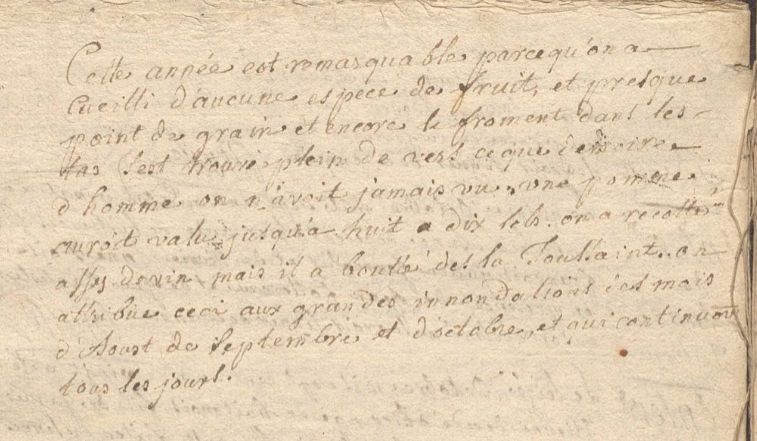 Cette année est remarquable parcequ'on a
cueilli d'aucune espece de fruit, et presque
point de grain et encore le froment dans les
tas s'est trouvé plein de vers ce que de memoire
d'homme on n'avoit jamais vu, une pomme
auroit valu jusqu'a huit a dix lels. on a recolté
assés de vin mais il a bouté des la Toussaint. on
attribue ceci aux grandes innondations des mois
d'Aoust de septembre et d'octobre, et qui continuoit
tous les jours.